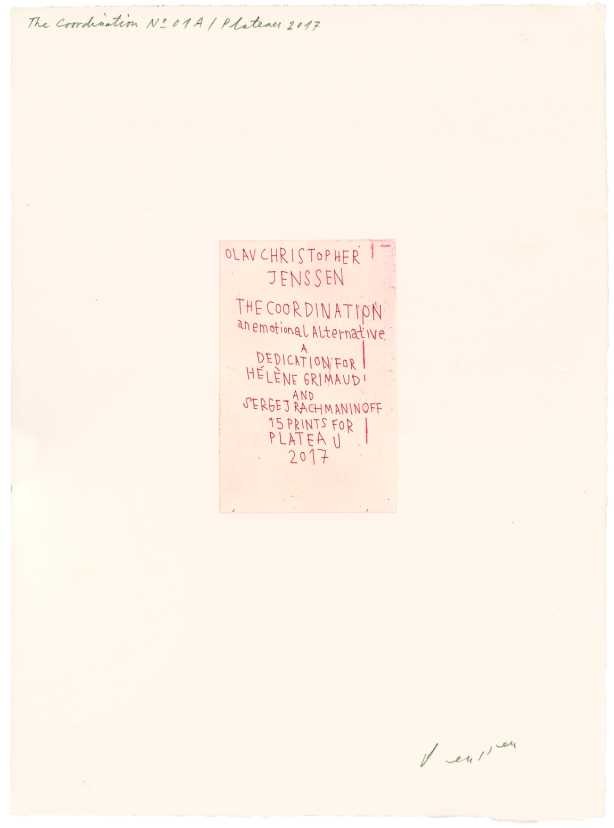 The Coordination Nº 01A / Plateau 2017
OLAV CHRISTOPHER
JENSSEN
THE COORDINATION
an emotional Alternative
A
DEDICATION FOR
HÉLÈNE GRIMAUD
AND
SERGEJ RACHMANINOFF
15 PRINTS FOR
PLATEAU
2017
Jenssen